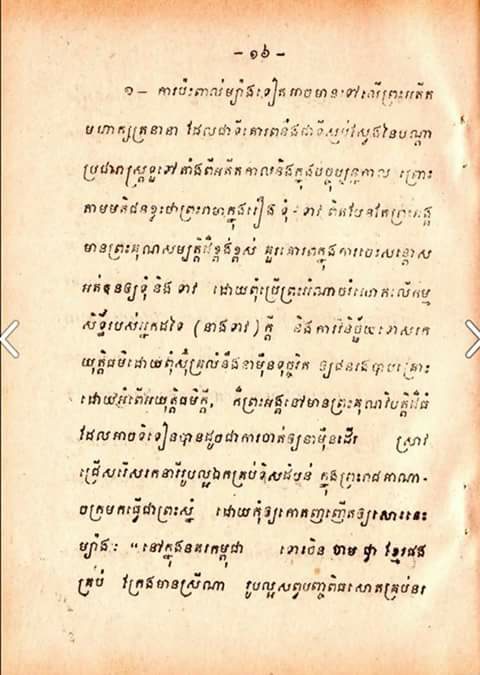 - ១៦ -
១- ការប៉ះពាល់ម្យ៉ាងទៀតអាចមានទៅលើព្រះអតីត
មហាក្សត្រនានា ដែលជាទីគោរពនឹងជាទីស្ញប់ស្ញែងនៃបណ្ដា
ប្រជារាស្ត្រទូទៅតាំងពីអតីតកាលនិងក្នុងបច្ចុប្បន្នកាល ព្រោះ
តាមមតិជនខ្លះថាព្រះរាមាក្នុងរឿង ទុំ-ទាវ ពិតមែនតែព្រះអង្គ
មានព្រះគុណសម្បត្តិដ៏ខ្ពង់ខ្ពស់ គួរគោរពក្នុងការចេះសន្ដោស
អត់ឱនឲ្យទុំនិងទាវ ដោយពុំប្រើព្រះអំណាចរំលោភលើកម្ម
សិទ្ធិរបស់អ្នកដទៃ (នាងទាវ) ក្ដី និងការវិនិច្ឆ័យទោសរក
យុត្តិធម៌ដោយពុំស៊ុំគ្រលំនឹងខាម៉ឺនទុច្ចរិត ឲ្យផងរងបាបគ្រោះ
ដោយអំពើអយុត្តិធម៌ក្ដី, ក៏ព្រះអង្គនៅមានព្រះគុណវិបត្តិដ៏ធំ
ដែលអាចទិទៀនបានដូចជាការចាត់ឲ្យនាម៉ឺនដើរ ស្រាវ
ជ្រើសរើសរកនារីរូបល្អឯកគ្រប់ទិសដំបន់ ក្នុងព្រះរាជអាណា-
ចក្រមកធ្វើជាព្រះស្នំ ដោយគុំឲ្យកោតញញើតឲ្យសោះនេះ
ម្យ៉ាង: "នៅក្នុងនគរកម្ពុជា ទោះចិន ចាម ជ្វា ខ្មែរផង
គ្រប់ ក្រែងមានស្រីណា រូបល្អសព្វបញ្ចពិធសោតគ្រប់នរ